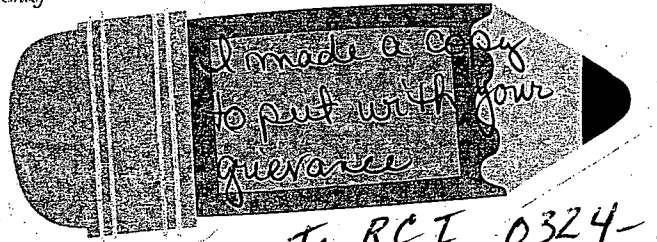 I made a copy
to put with your
grievance
RCI 0324-